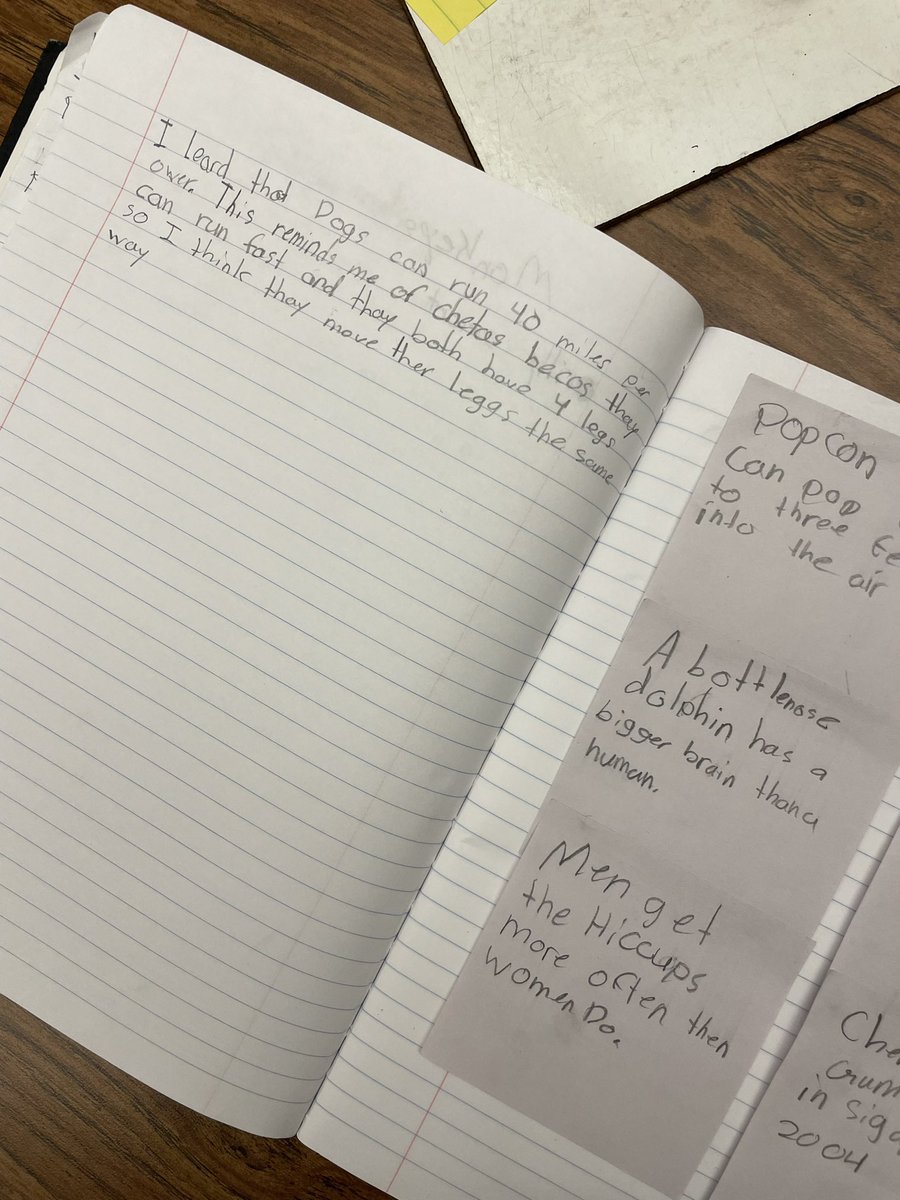 I leard that Dogs can run 40 miles per
ower. This reminds me of chetas becos thay
can run fast and thay both have 4 legs
so I think thay move ther Leggs the same
way
Popcon
Can pop
to three
into the air
A bottlenose
dolphin has a
bigger brain than a
human.
Men get
the Hiccups
more often then
women Do.
in
2004